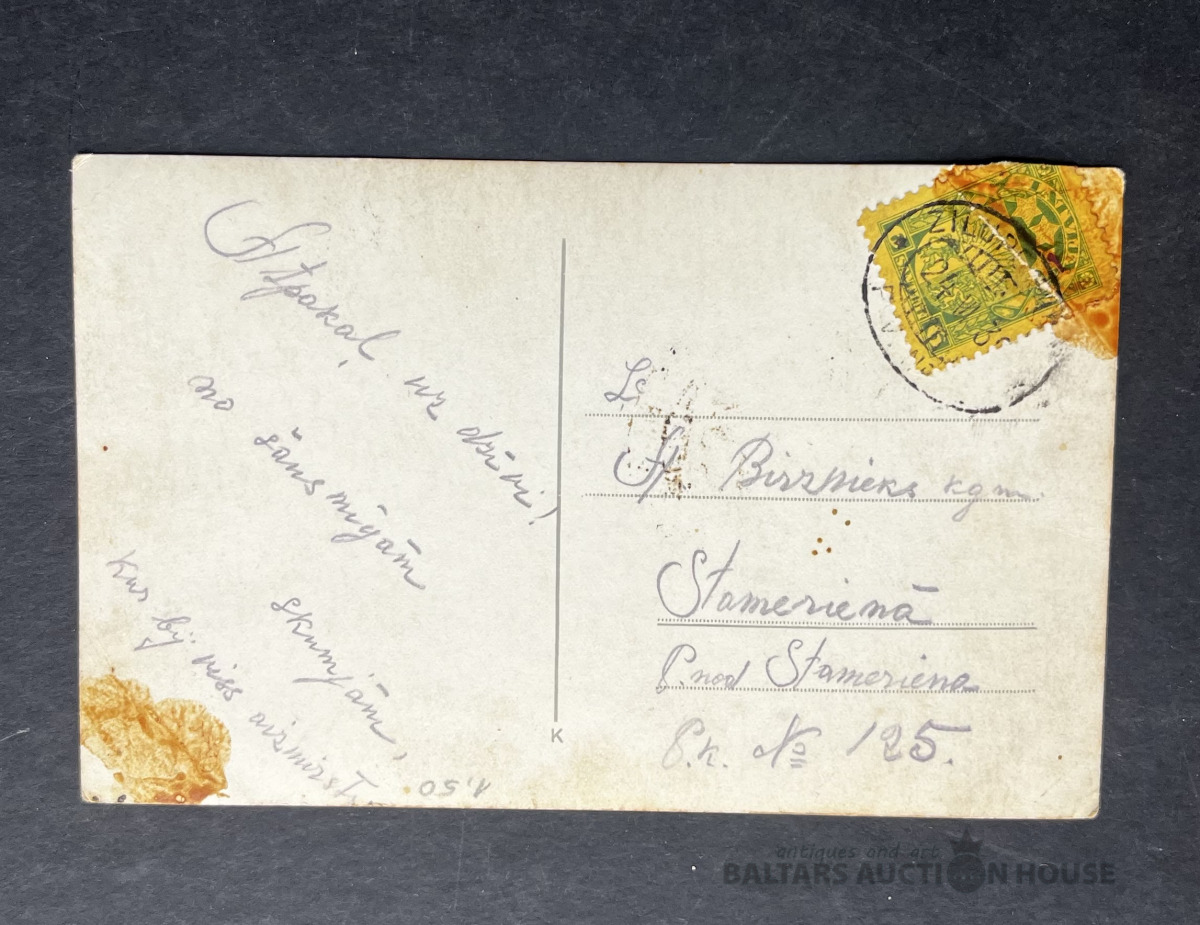 Atpakaļ uz dzīvi!
no šausmīgām
skumjām,
Kur bij viss aizmirst
1.50
K
Lc.
A Birznieks kgm.
Stamerienā
P. nod Stameriena
P.k. № 125.
LATVIJA
antiques and art
BALTARS AUCTION HOUSE